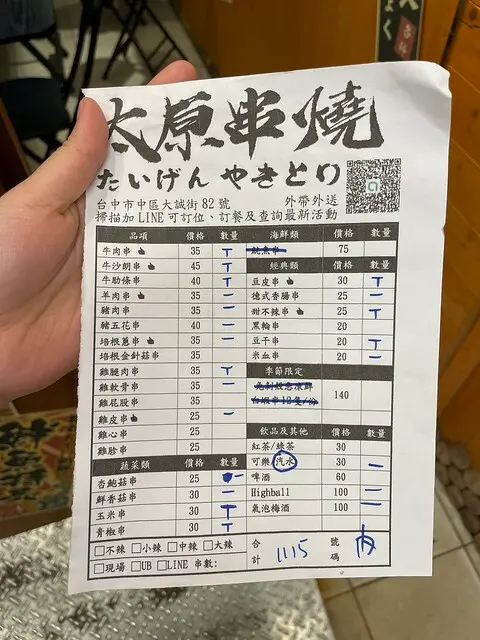 太原串燒
たいげん やきとり
台中市中區大誠街82號 外帶外送
掃描加LINE可訂位、訂餐及查詢最新活動
品項 價格 數量 海鮮類 價格 數量
牛肉串 35 T 魷魚串 75
牛沙朗串 45 T 經典類 價格 數量
牛肋條串 40 T 豆皮串 30 T
羊肉串 35 一 德式香腸串 25 一
豬肉串 35 一 甜不辣串 25 T
豬五花串 40 一 黑輪串 20
培根蔥串 35 一 豆干串 20 T
培根金針菇串 35 米血串 20 一
雞腿肉串 35 T 季節限定
雞軟骨串 35 一 140
雞屁股串 35
雞皮串 25 一 飲品及其他 價格 數量
雞心串 25 紅茶/綠茶 30
雞胗串 25 可樂/汽水 30 一
蔬菜類 價格 數量 啤酒 60
杏鮑菇串 25 一 Highball 100 二
鮮香菇串 30 一 氣泡梅酒 100 一
玉米串 30 T
青椒串 30 T
□不辣 □小辣 □中辣 □大辣 合計 1115 號碼 內
□現場 □UB □LINE 串數: